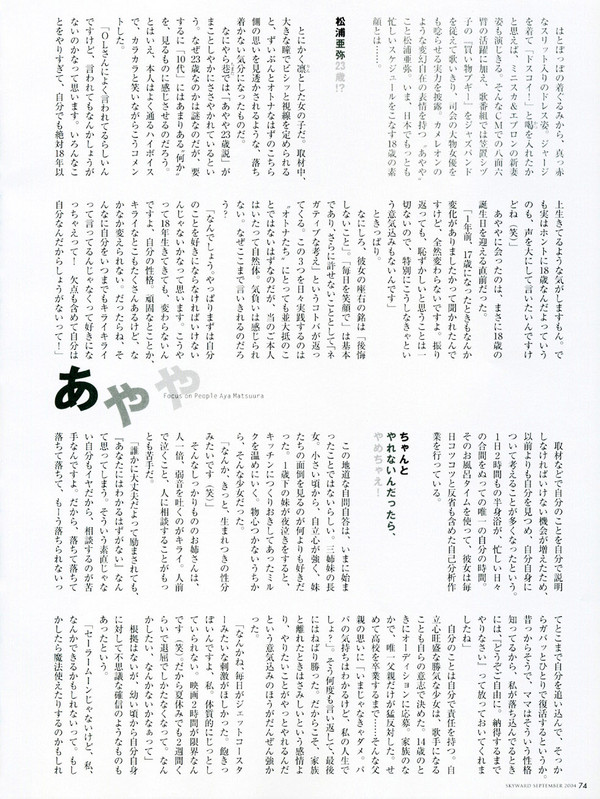 はとぽっぽの着ぐるみから、真っ赤
なスリット入りのドレス姿、ジャージ
を着て「ドスコイー!」と喝を入れたか
と思えば、ミニスカ&エプロンの新妻
姿も演じきる。そんなCMでの八面六
臂の活躍に加え、歌番組では笠置シヅ
子の『買い物ブギー』をジャズバンド
を従えて歌いきり、司会の大物女優を
も唸らせる実力を披露。カメレオンの
ような変幻自在の表情を持つ〝あやや〟
こと松浦亜弥。いま、日本でもっとも
忙しいスケジュールをこなす18歳の素
顔とは……
松浦亜弥23歳!?
とにかく凛とした女の子だ。取材中、
大きな瞳でビシッと視線を定められる
と、ずいぶんとオトナなはずのこちら
側の思いを見透かされるような、落ち
着かない気分になったものだ。
なにやら巷では「あやや23歳説」が
まことしやかにささやかれているとい
う。なぜ23歳なのかは謎なのだが、要
するに「10代」にはあまりある〝何か〟
を、見るものに感じさせるのだろう。
とはいえ、本人はよく通るハイボイス
で、カラカラと笑いながらこうコメン
トした。
「OLさんによく言われてるらしいん
ですけど、言われてもなんかしょうが
ないのかなって思います。いろんなこ
とをやりすぎて、自分でも絶対18年以
上生きてるような気がしますもん。で
も実はホントに18歳なんだよっていう
のも、声を大にして言いたいんですけ
どね(笑)」
あややに会ったのは、まさに18歳の
誕生日を迎える直前だった。
「1年前、17歳になったときもなんか
変化がありましたかって聞かれたんで
すけど、全然変わらないですよ。振り
返っても恥ずかしいと思うことは一
切ないので、特別にこうしなきゃとい
う意気込みもないんです」
ときっぱり。
なにしろ、彼女の座右の銘は「後悔
しないこと」。「毎日を笑顔で」は基本
であり、さらに許せないこととして「ネ
ガティブな考え」というコトバが返っ
てくる。この3つを日々実践するのは
〝オトナたち〟にとっても並大抵のこ
とではないはずなのだが、当のご本人
はいたって自然体。気負いは感じられ
ない。なぜここまで言いきれるのだろ
う?
「なんでしょう。やっぱりまずは自分
のことを好きにならなければいけない
んじゃないかなって思います。こうや
って18年生きてきても、変わらないん
ですよ、自分の性格。頑固なとことか、
キライなとこもたくさんあるけど、な
かなか変えられない。だったらね、そ
んなに自分をいつまでもキライキライ
って言ってるんじゃなくって好きにな
っちゃえって!　欠点も含めて自分は
自分なんだからしょうがないって!」
あやや
Focus on People Aya Matsuura
取材などで自分のことを自分で説明
しなければいけない機会が増えたため、
以前よりも自分を見つめ、自分自身に
ついて考えることが多くなったという。
1日2時間もの半身浴が、忙しい日々
の合間をぬっての唯一の自分の時間。
そのお風呂タイムを使って、彼女は毎
日コツコツと反省も含めた自己分析作
業を行っている。
ちゃんと
やれないんだったら、
やめちゃえ!
この地道な自問自答は、いまに始ま
ったことではないらしい。三姉妹の長
女。小さい頃から、自立心が強く、妹
たちの面倒を見るのが何よりも好きだ
った。1歳下の妹が夜泣きをすると、
キッチンにつくりおきしてあったミル
クを温めにいく。物心つかないうちか
ら、そんな少女だった。
「なんか、きっと、生まれつきの性分
みたいです(笑)」
そんなしっかりもののお姉さんは、
人一倍、弱音を吐くのがキライ。人前
で泣くこと、人に相談することがもっ
とも苦手だ。
「誰かに大丈夫だよって励まされても、
『あなたにはわかるはずがない』なん
て思ってしまう。そういう素直じゃな
い自分もイヤだから、相談するのが苦
手なんですよ。だから、落ちて落ちて
落ちて落ちて、もーう落ちられないっ
てとこまで自分を追い込んで、そっか
らガバッとひとりで復活するというか。
昔っからそうで、ママはそういう性格
知ってるから、私が落ち込んでるとき
には『どうぞご自由に。納得するまで
やりなさい』って放っておいてくれま
したね」
自分のことは自分で責任を持つ。自
立心旺盛な勝気な少女は、歌手になる
ことも自らの意志で決めた。14歳のと
きにオーディションに応募。家族のな
かで、唯一父親だけが猛反対した。せ
めて高校を卒業するまで……そんな父
親の思いに「いまじゃなきゃダメ。パ
パの気持ちはわかるけど、私の人生で
しょ?」。そう何度も言い返して、最後
にはねばり勝った。だからこそ、家族
と離れたときはさみしいという感情よ
り、やりたいことがやっとやれるんだ
という意気込みのほうがだんぜん強か
った。
「なんかね、毎日がジェットコースタ
ーみたいな刺激がほしかった。飽きっ
ぽいんですよ、私。体質的にじっとし
ていられない。映画2時間が限界なん
です(笑)。だから夏休みでも2週間く
らいで退屈でしかたなくなって。なん
かしたい、なんかないかなぁって」
根拠はないが、幼い頃から自分自身
に対して不思議な確信のようなものも
あったという。
「セーラームーンじゃないけど、私、
なんかできるかもしれないって。もし
かしたら魔法使えたりするのかもしれ
SKYWARD SEPTEMBER 2004 74